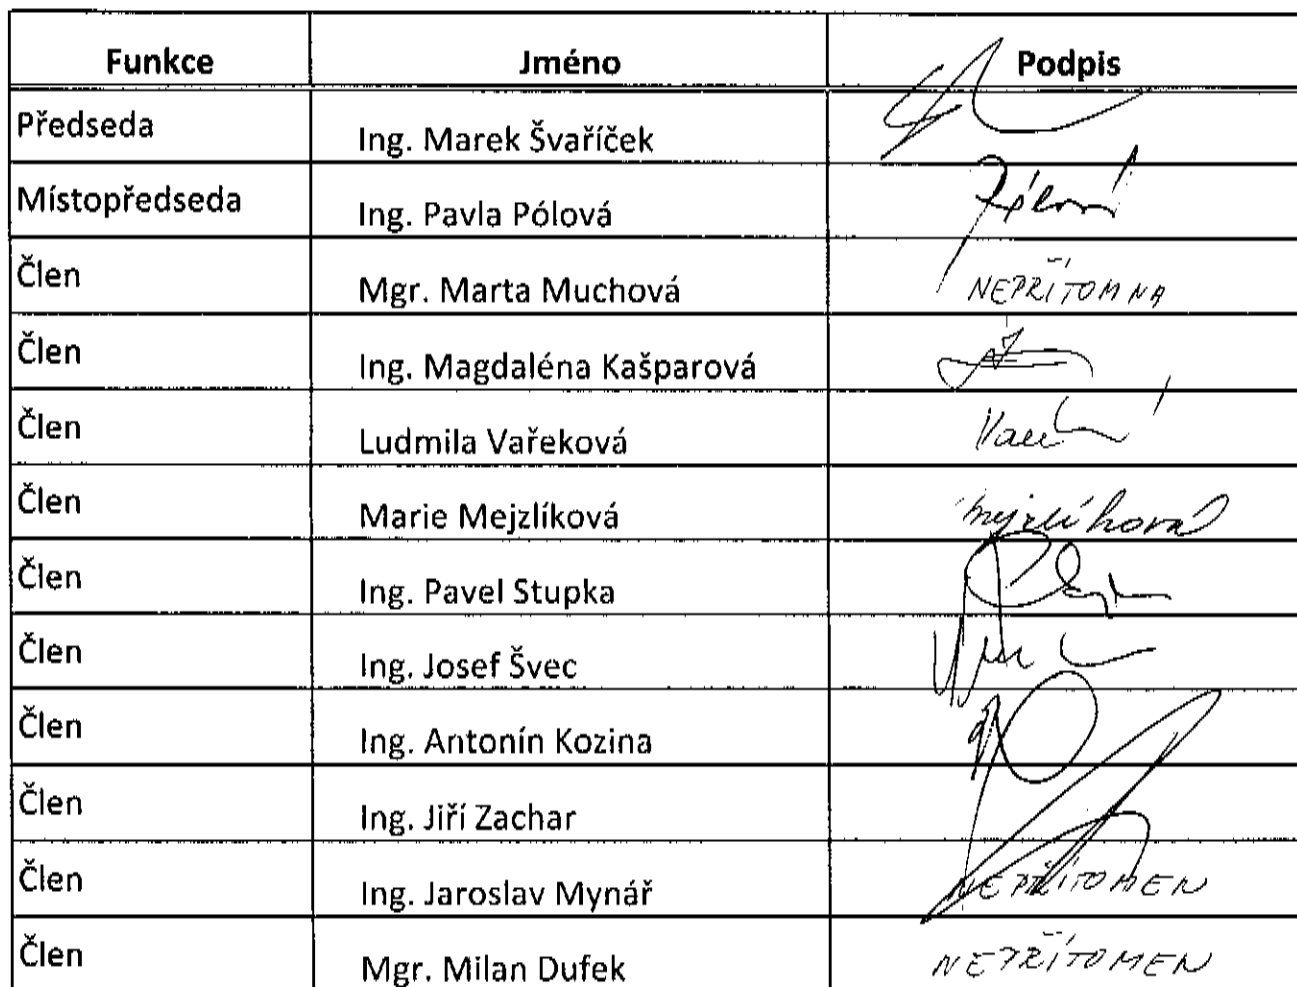 Funkce Jméno Podpis
Předseda Ing. Marek Švaříček
Místopředseda Ing. Pavla Pólová Pólová
Člen Mgr. Marta Muchová NEPŘÍTOMNA
Člen Ing. Magdaléna Kašparová
Člen Ludmila Vařeková
Člen Marie Mejzlíková Mejzlíková
Člen Ing. Pavel Stupka
Člen Ing. Josef Švec
Člen Ing. Antonín Kozina
Člen Ing. Jiří Zachar
Člen Ing. Jaroslav Mynář NEPŘÍTOMEN
Člen Mgr. Milan Dufek NEPŘÍTOMEN